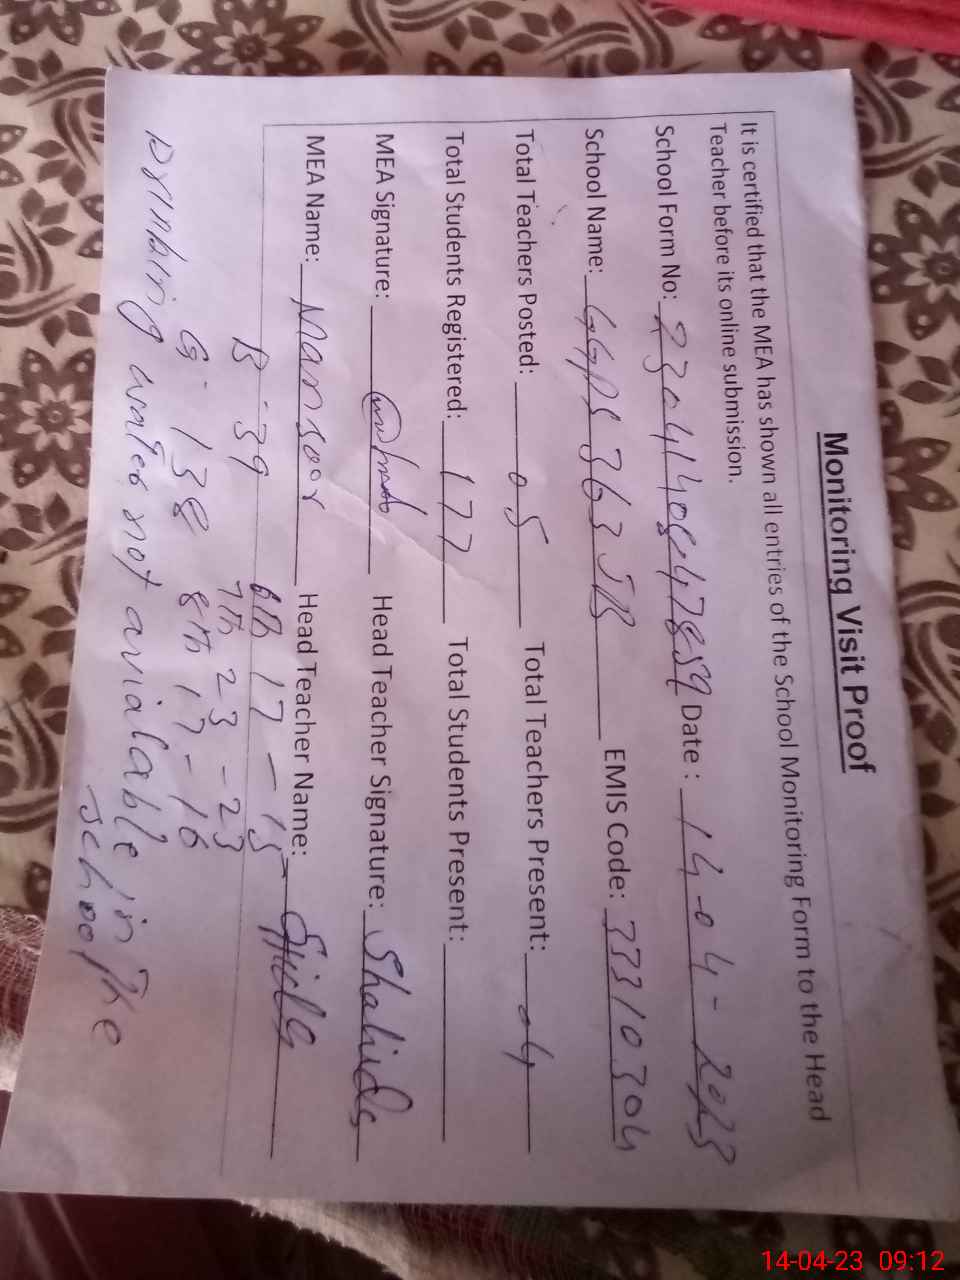 Monitoring Visit Proof
It is certified that the MEA has shown all entries of the School Monitoring Form to the Head
Teacher before its online submission.
School Form No: Date : 14-04-2023
School Name: GGPS 363 JB EMIS Code: 33310304
Total Teachers Posted: 05 Total Teachers Present: 04
Total Students Registered: 177 Total Students Present:
MEA Signature: Head Teacher Signature: Shahida
MEA Name: Mansoor Head Teacher Name:
B - 39 6th 17 - 15
7th 23 - 23
G - 138 8th 17 - 16
Drinking water not avialable in the
school
14-04-23 09:12